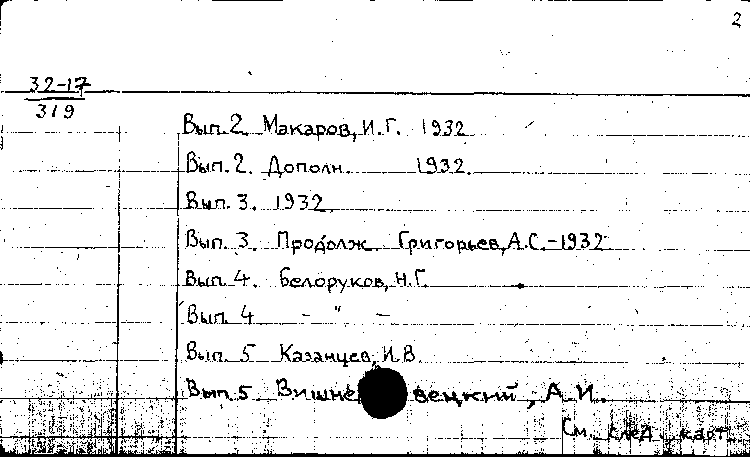 2
32-17
319
Вып. 2. Макаров, И.Г. 1932
Вып. 2. Дополн. 1932.
Вып. 3. 1932.
Вып. 3. Продолж. Григорьев, А.С. - 1932
Вып. 4. Белоруков, Н.Г.
Вып. 4 - " -
Вып. 5 Казанцев, И.В.
Вып. 5. Вишневецкий, А.И.
См. след. карт.